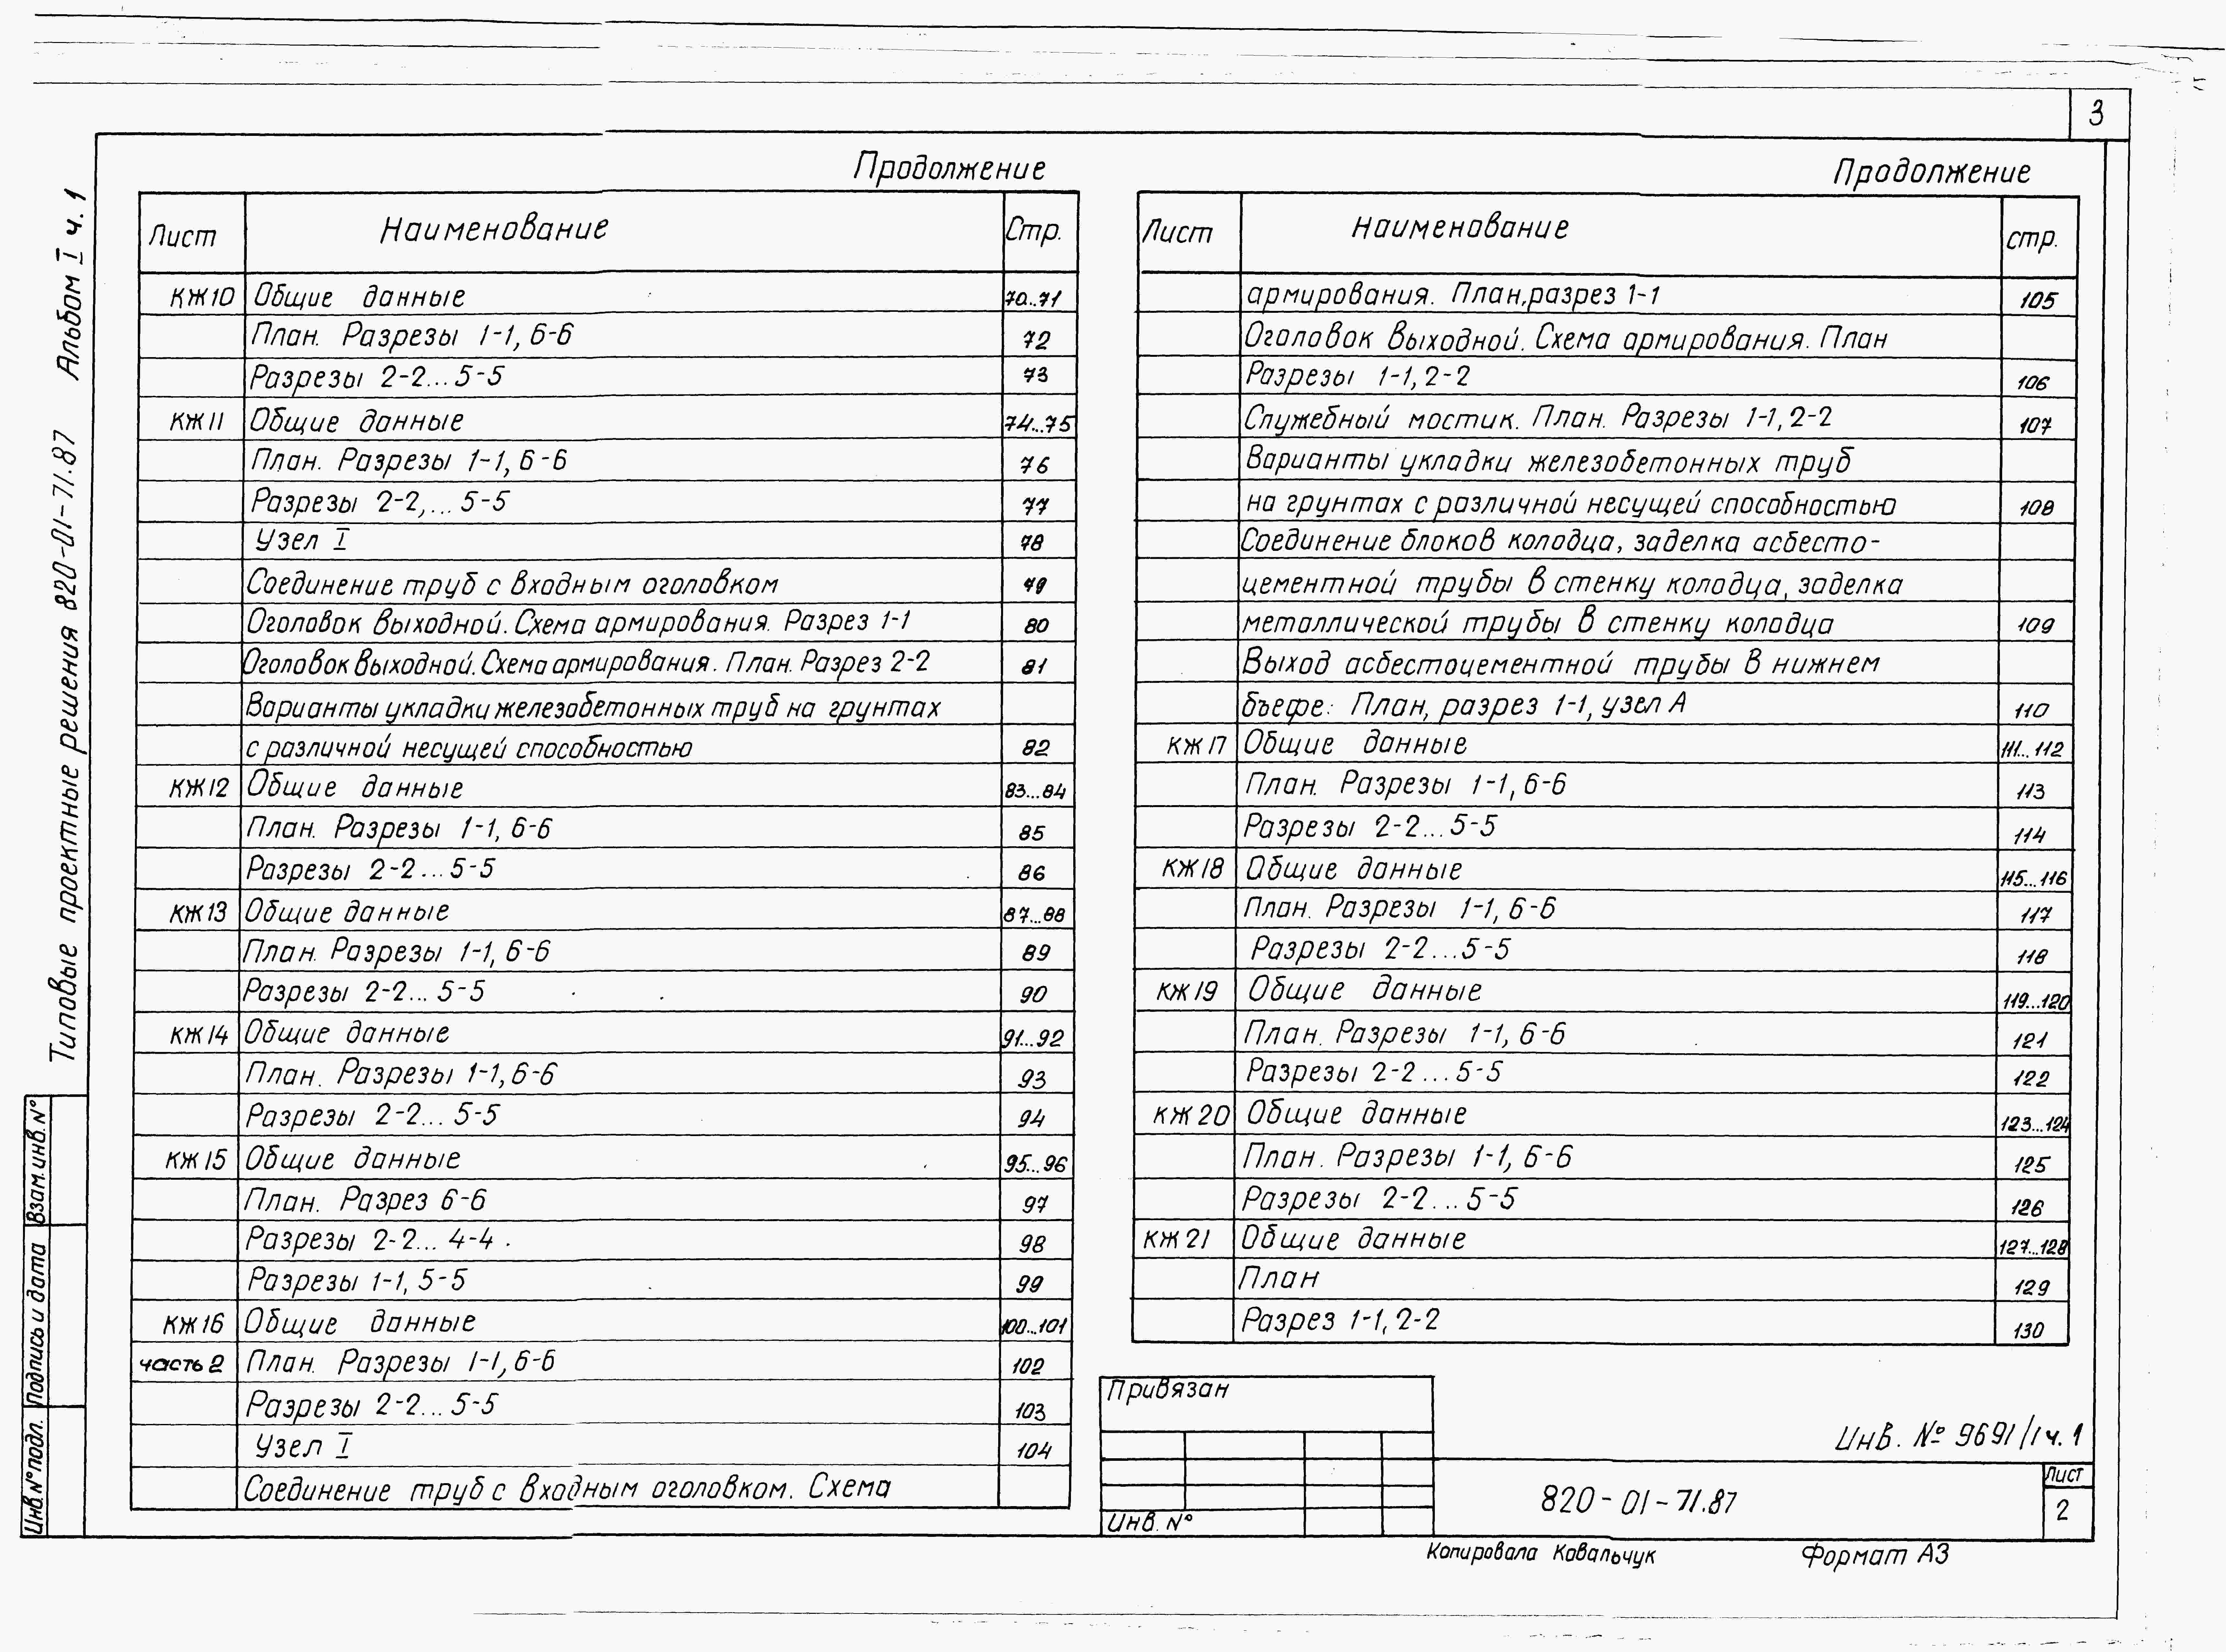 3
Продолжение
Лист Наименование Стр.
КЖ10 Общие данные 70...71
План. Разрезы 1-1, 6-6 72
Разрезы 2-2...5-5 73
КЖ11 Общие данные 74...75
План. Разрезы 1-1, 6-6 76
Разрезы 2-2,...5-5 77
Узел I 78
Соединение труб с входным оголовком 79
Оголовок выходной. Схема армирования. Разрез 1-1 80
Оголовок выходной. Схема армирования. План. Разрез 2-2 81
Варианты укладки железобетонных труб на грунтах
с различной несущей способностью 82
КЖ12 Общие данные 83...84
План. Разрезы 1-1, 6-6 85
Разрезы 2-2...5-5 86
КЖ13 Общие данные 87...88
План. Разрезы 1-1, 6-6 89
Разрезы 2-2...5-5 90
КЖ14 Общие данные 91...92
План. Разрезы 1-1, 6-6 93
Разрезы 2-2...5-5 94
КЖ15 Общие данные 95...96
План. Разрез 6-6 97
Разрезы 2-2...4-4 98
Разрезы 1-1, 5-5 99
КЖ16 Общие данные 100...101
часть 2 План. Разрезы 1-1, 6-6 102
Разрезы 2-2...5-5 103
Узел I 104
Соединение труб с входным оголовком. Схема
Продолжение
Лист Наименование стр.
армирования. План, разрез 1-1 105
Оголовок выходной. Схема армирования. План
Разрезы 1-1, 2-2 106
Служебный мостик. План. Разрезы 1-1, 2-2 107
Варианты укладки железобетонных труб
на грунтах с различной несущей способностью 108
Соединение блоков колодца, заделка асбесто-
цементной трубы в стенку колодца, заделка
металлической трубы в стенку колодца 109
Выход асбестоцементной трубы в нижнем
бъефе: План, разрез 1-1, узел А 110
КЖ17 Общие данные 111...112
План. Разрезы 1-1, 6-6 113
Разрезы 2-2...5-5 114
КЖ18 Общие данные 115...116
План. Разрезы 1-1, 6-6 117
Разрезы 2-2...5-5 118
КЖ19 Общие данные 119...120
План. Разрезы 1-1, 6-6 121
Разрезы 2-2...5-5 122
КЖ20 Общие данные 123...124
План. Разрезы 1-1, 6-6 125
Разрезы 2-2...5-5 126
КЖ21 Общие данные 127...128
План 129
Разрез 1-1, 2-2 130
Привязан
Инв. №
Инв. № 9691/1 ч.1
820-01-71.87
Лист
2
Копировала Ковальчук Формат А3
Типовые проектные решения 820-01-71.87 Альбом I ч.1
Инв.№ подл. Подпись и дата Взам.инв.№